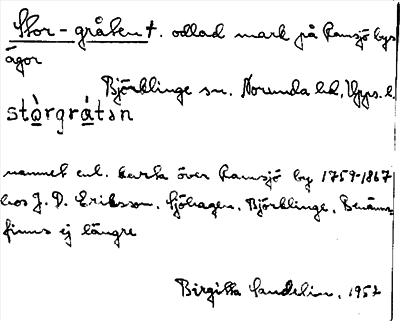 Stor-gråten †. odlad mark på Ramsjö bys
ägor
Björklinge sn. Norunda hd, Upps. l.
stòrgrát∂n
namnet enl. karta över Ramsjö by 1759-1867
hos J. D. Eriksson, Sjöhagen, Björklinge. Benämn-
finns ej längre
Birgitta Sandelin, 1952